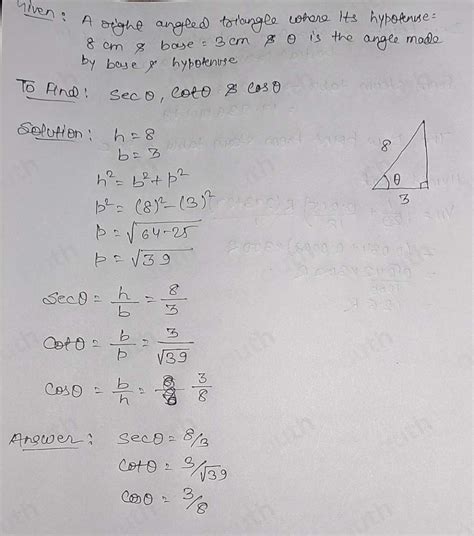 Given: A right angled triangle where its hypotenuse =
8 cm & base = 3 cm & θ is the angle made
by base & hypotenuse
To find: secθ, cotθ & cosθ
Solution: h = 8
b = 3
h² = b² + p²
p² = (8)² - (3)²
p = √64-25
p = √39
8
θ
3
secθ = h/b = 8/3
cotθ = b/p = 3/√39
cosθ = b/h = 3/8
Answer: secθ = 8/3
cotθ = 3/√39
cosθ = 3/8